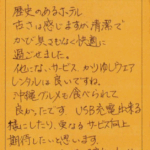 歴史のあるホテル
古さは感じますが、清潔で
かび臭さもなく快適に
過ごせました。
他にないサービス かりゆしウェア
レンタルは良いですね。
沖縄グルメも食べられて
良かったです USB充電出来る
様にしたり、更なるサービス向上
期待したいと思います